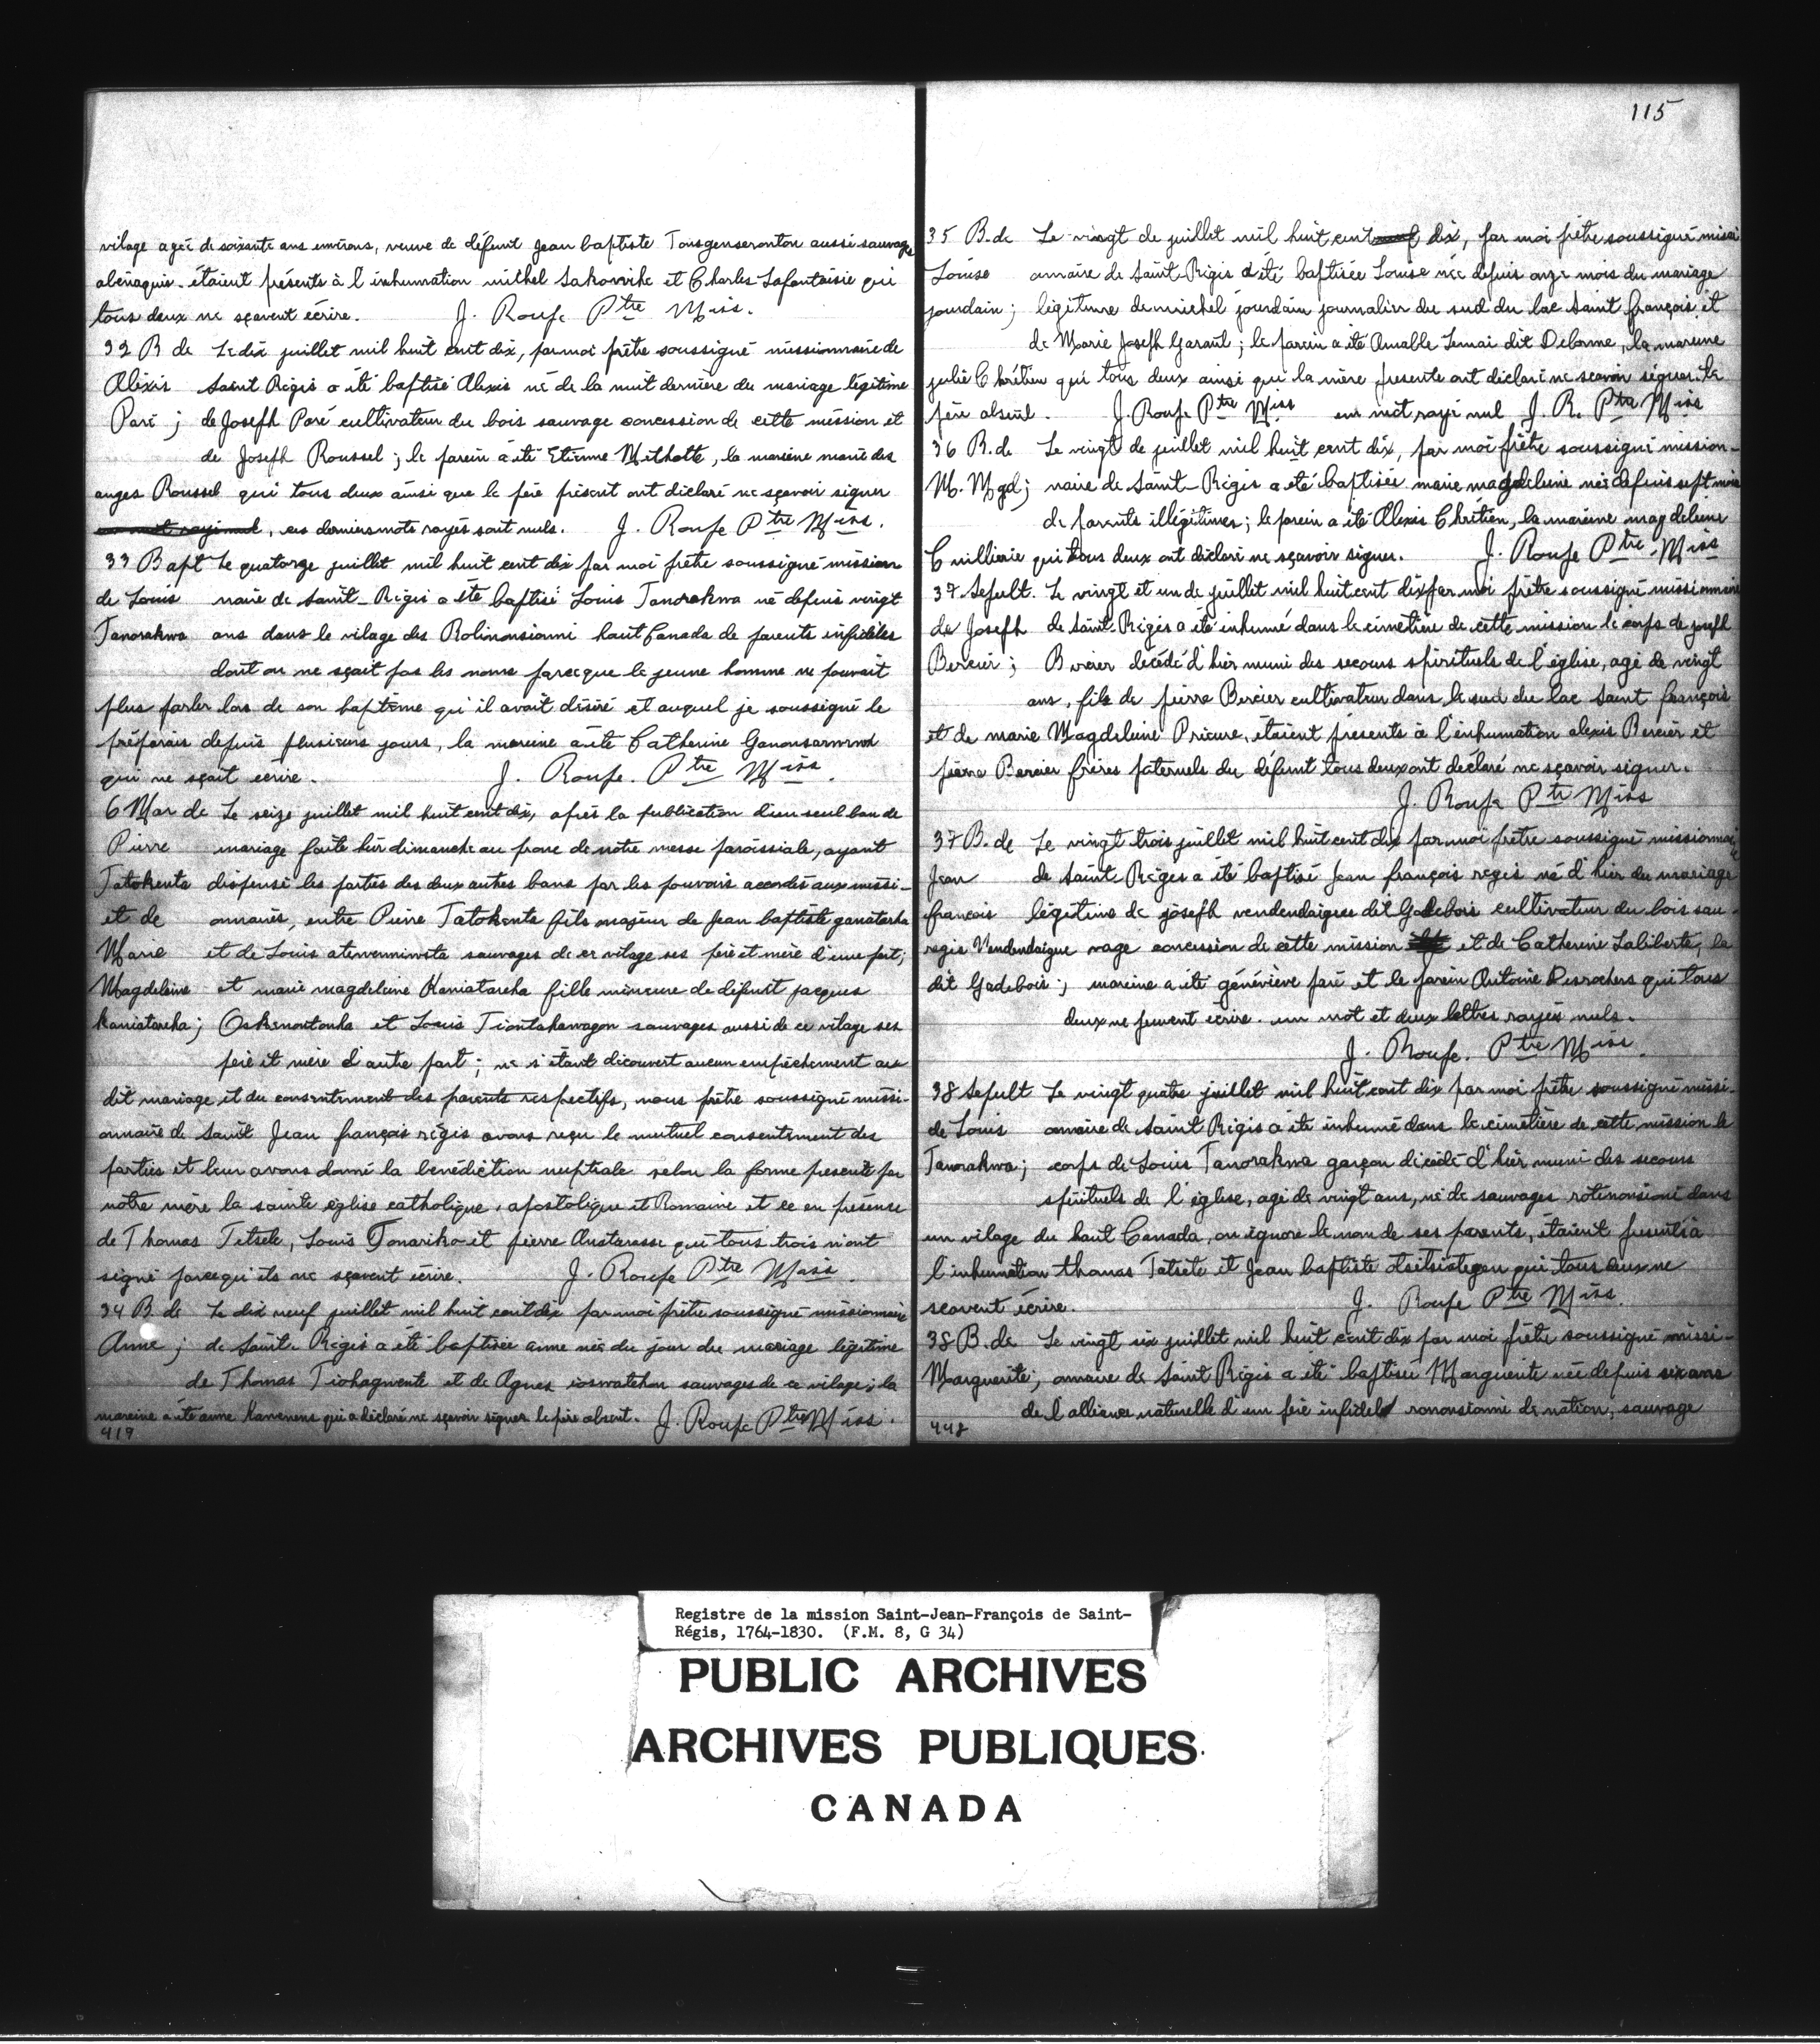 vilage agée de soixante ans environs, veuve de défunt Jean baptiste Tonsgenseronton aussi sauvage
abénaquis. étaient présents à l'inhumation michel Sakorwihe et Charles Lafantaisie qui
tous deux ne sçavent écrire. J. Roupe Ptre Miss.
32 B de Le dix juillet mil huit cent dix, par moi prêtre soussigné missionnaire de
Alexis Saint Régis a été baptisé Alexis né de la nuit dernière du mariage légitime
Paré ; de Joseph Paré cultivateur du bois sauvage concession de cette mission et
de Joseph Roussel ; le parein a été Etienne Mithotte, la mareine marie des
anges Roussel qui tous deux ainsi que le père présent ont déclaré ne sçavoir signer
un mot rayé nul, ces derniers mots rayés sont nuls. J. Roupe Ptre Miss.
33 Bapt Le quatorze juillet mil huit cent dix par moi prêtre soussigné mission
de Louis naire de Saint-Régis a été baptisé Louis Tanorakwa né depuis vingt
Tanorakwa ans dans le vilage des Rolinonsionni haut Canada de parents infidèles
dont on ne sçait pas les noms parceque le jeune homme ne pouvait
plus parler lors de son baptême qu'il avait désiré et auquel je soussigné le
préparais depuis plusieurs jours, la mareine a été Catherine
qui ne sçait écrire. J. Roupe. Ptre Miss.
6 Mar de Le seize juillet mil huit cent dix, après la publication d'un seul ban de
Pierre mariage faite hier dimanche au prone de notre messe paroissiale, ayant
Tatokenta dispensé les parties des deux autres bans par les pouvoirs accordés aux missi-
et de onnaires, entre Pierre Tatokenta fils majeur de Jean baptiste ganatarha
Marie et de Louis sauvages de ce vilage ses père et mère d'une part;
Magdeleine et marie magdeleine Kaniatareha fille mineure de défunt jacques
kaniatareha; Oskenontonha et Louis Tiontahawagon sauvages aussi de ce vilage ses
père et mère d'autre part ; ne s'étant découvert aucun empêchement au
dit mariage et du consentement des parents respectifs, nous prêtre soussigné missi-
onnaire de Saint Jean françois régis avons reçu le mutuel consentement des
parties et leur avons donné la bénédiction nuptiale selon la forme prescrite par
notre mère la sainte église catholique, apostolique et Romaine et ce en présence
de Thomas Tetsete, Louis Tonariko et pierre Anataresse qui tous trois n'ont
signé parcequ'ils ne sçavent écrire. J. Roupe Ptre Miss.
34 B. de Le dix neuf juillet mil huit cent dix par moi prêtre soussigné missionnaire
Anne ; de Saint. Régis a été baptisée anne née du jour du mariage légitime
de Thomas Tiohagwente et de Agnes ioswatehon sauvages de ce vilage; la
mareine a été anne Kanenens qui a déclaré ne sçavoir signer le père absent. J. Roupe Ptre Miss.
419
115
35 B. de Le vingt de juillet mil huit cent neuf dix, par moi prêtre soussigné missi
Louise onnaire de Saint-Régis a été baptisée Louise née depuis onze mois du mariage
jourdain ; légitime de michel jourdain journalier du sud du lac Saint françois et
de Marie Joseph Garant ; le parein a été Amable Lemai dit Delorme, la mareine
julie Chrétien qui tous deux ainsi que la mère presente ont déclaré ne sçavoir signer. le
père absent. J. Roupe Ptre Miss un mot rayé nul J. R. Ptre Miss
36 B. de Le vingt de juillet mil huit cent dix, par moi prêtre soussigné mission-
M. Mgd; naire de Saint-Régis a été baptisée marie magdeleine née depuis sept mois
de parents illégitimes ; le parein a été Alexis Chrétien, la mareine magdeleine
Cuillierie qui tous deux ont déclaré ne sçavoir signer. J. Roupe Ptre. Miss
37 Sepult. Le vingt et un de juillet mil huit cent dix par moi prêtre soussigné missionnaire
de Joseph de Saint-Régis a été inhumé dans le cimetière de cette mission le corps de joseph
Bercier ; Bercier décédé d'hier muni des secours spirituels de l'église, agé de vingt
ans, fils de pierre Bercier cultivateur dans le sud du lac Saint françois
et de marie Magdeleine Prieure, étaient présents à l'inhumation alexis Bercier et
pierre Bercier frères paternels du défunt tous deux ont déclaré ne sçavoir signer.
J. Roupe Ptre Miss
37 B. de Le vingt trois juillet mil huit cent dix par moi prêtre soussigné missionnaire
Jean de Saint. Régis a été baptisé Jean françois regis né d'hier du mariage
francois légitime de joseph vendendaigues dit Gadebois cultivateur du bois sau-
regis Vendendaigue vage concession de cette mission et de Catherine Laliberté, la
dit Gadebois ; mareine a été généviève paré et le parein Antoine Desrochers qui tous
deux ne peuvent écrire. un mot et deux lettres rayés nuls.
J. Roupe. Ptre Miss.
38 Sepult Le vingt quatre juillet mil huit cent dix par moi prêtre soussigné missi-
de Louis onnaire de Saint Régis a été inhumé dans le cimetière de cette mission le
Tanorakwa; corps de Louis Tanorakwa garçon décédé d'hier muni des secours
spirituels de l'église, agé de vingt ans, né de sauvages rotinonsioni dans
un vilage du haut Canada, on ignore le nom de ses parents, étaient presents à
l'inhumation thomas Tatsete et Jean baptiste otsitsiategon qui tous deux ne
sçavent écrire. J. Roupe Ptre Miss.
38 B. de Le vingt six juillet mil huit cent dix par moi prêtre soussigné missi-
Marguerite; onnaire de Saint Régis a été baptisée Marguerite née depuis six ans
de l'alliance naturelle d'un père infidel ronousionni de nation, sauvage
448
Registre de la mission Saint-Jean-François de Saint-
Régis, 1764-1830. (F.M. 8, G 34)
PUBLIC ARCHIVES
ARCHIVES PUBLIQUES
CANADA